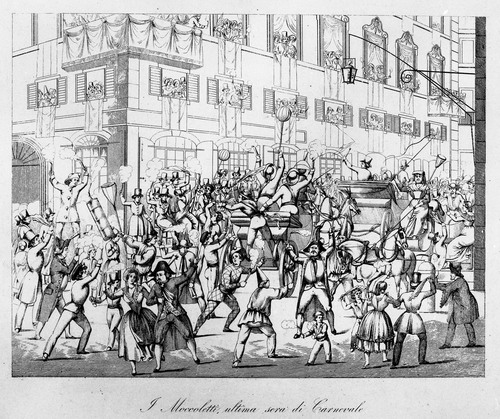 I Moccoletti, ultima sera di Carnevale